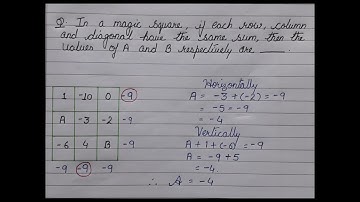 Q In a magic square, if each row, column
and diagonal have the same sum, then the
values of A and B respectively are ____.
1 -10 0 -9
A -3 -2 -9
-6 4 B -9
-9 -9 -9
Horizontally
A = -3 + (-2) = -9
-5 = -9
= -4
Vertically
A + 1 + (-6) = -9
A = -9 + 5
= -4
∴ A = -4